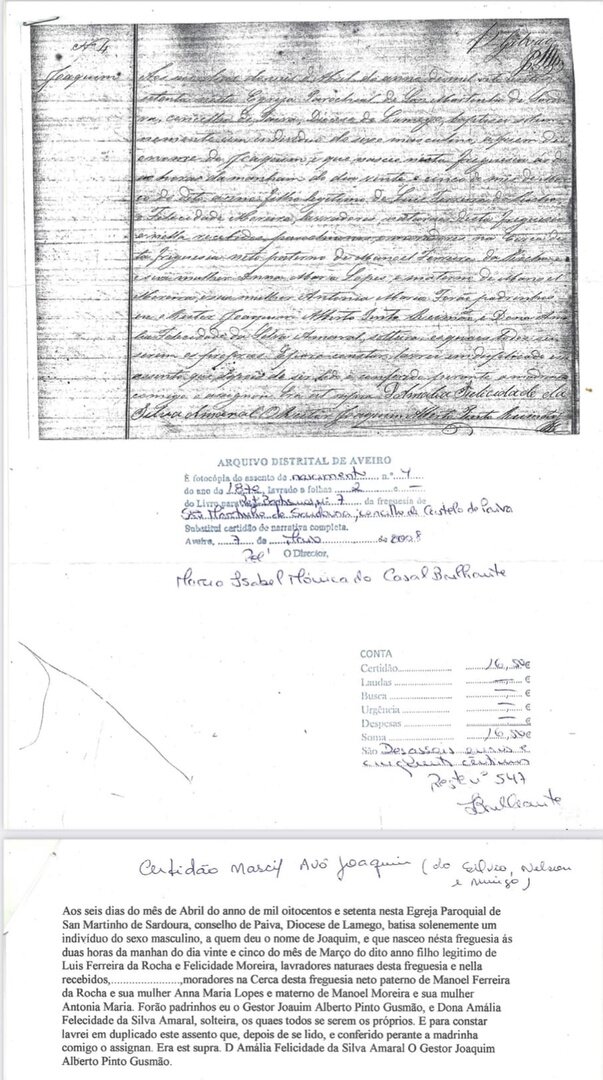 Nº 4
Joaquim
Aos seis dias do mes de Abril do anno de mil oito centos e
setenta nesta Egreja Parochial de San Martinho de Sardou
ra, concelho de Paiva, Diocese de Lamego, baptisei solem
nemente um individuo do sexo masculino, a quem dei
o nome de Joaquim, e que nasceu nesta freguesia ás du
as horas da manham do dia vinte e cinco do mez de Mar
ço do dito anno, filho legitimo de Luis Ferreira da Rocha
e Felicidade Moreira, lavradores naturaes desta freguesia
e nella recebidos, moradores na
freguesia neto paterno de Manoel Ferreira da Rocha
e sua mulher Anna Maria Lopes, e materno de Manoel
Moreira, e sua mulher Antonia Maria. Forão padrinhos
eu Joaquim Alberto Pinto Gusmão, e Dona Ama
lia Felicidade da Silva Amaral, solteira, os quaes todos sei
serem os proprios. E para constar lavrei em duplicado este
assento que, depois de ser lido e conferido perante a madrinha
comigo o assignou. Era ut supra. D. Amalia Felicidade da
Silva Amaral. Joaquim Alberto Pinto Gusmão
ARQUIVO DISTRITAL DE AVEIRO
É fotocópia do assento de nascimento n.º 4
do ano de 1870, lavrado a folhas 2 e —
do Livro para 7 da freguesia de
São Martinho de Sardoura, concelho de Castelo de Paiva
Substitui certidão de narrativa completa.
Aveiro, 7 de Maio de 2008
Pel' O Director,
Marcia Isabel Mónica do Casal Brilhante
CONTA
Certidão 16,50 €
Laudas — €
Busca — €
Urgência — €
Despesas — €
Soma 16,50 €
São Dezasseis euros e
cinquenta cêntimos
Reg.to nº 547
Brilhante
Certidão Nascif Avô Joaquim (do Silvio, Nelson
e
Aos seis dias do mês de Abril do anno de mil oitocentos e setenta nesta Egreja Paroquial de
San Martinho de Sardoura, conselho de Paiva, Diocese de Lamego, batisa solenemente um
indivíduo do sexo masculino, a quem deu o nome de Joaquim, e que nasceo nésta freguesia ás
duas horas da manhan do dia vinte e cinco do mês de Março do dito anno filho legitimo de
Luis Ferreira da Rocha e Felicidade Moreira, lavradores naturaes desta freguesia e nella
recebidos,.......................,moradores na Cerca desta freguesia neto paterno de Manoel Ferreira
da Rocha e sua mulher Anna Maria Lopes e materno de Manoel Moreira e sua mulher
Antonia Maria. Forão padrinhos eu o Gestor Joauim Alberto Pinto Gusmão, e Dona Amália
Felecidade da Silva Amaral, solteira, os quaes todos se serem os próprios. E para constar
lavrei em duplicado este assento que, depois de se lido, e conferido perante a madrinha
comigo o assignan. Era est supra. D Amália Felicidade da Silva Amaral O Gestor Joaquim
Alberto Pinto Gusmão.